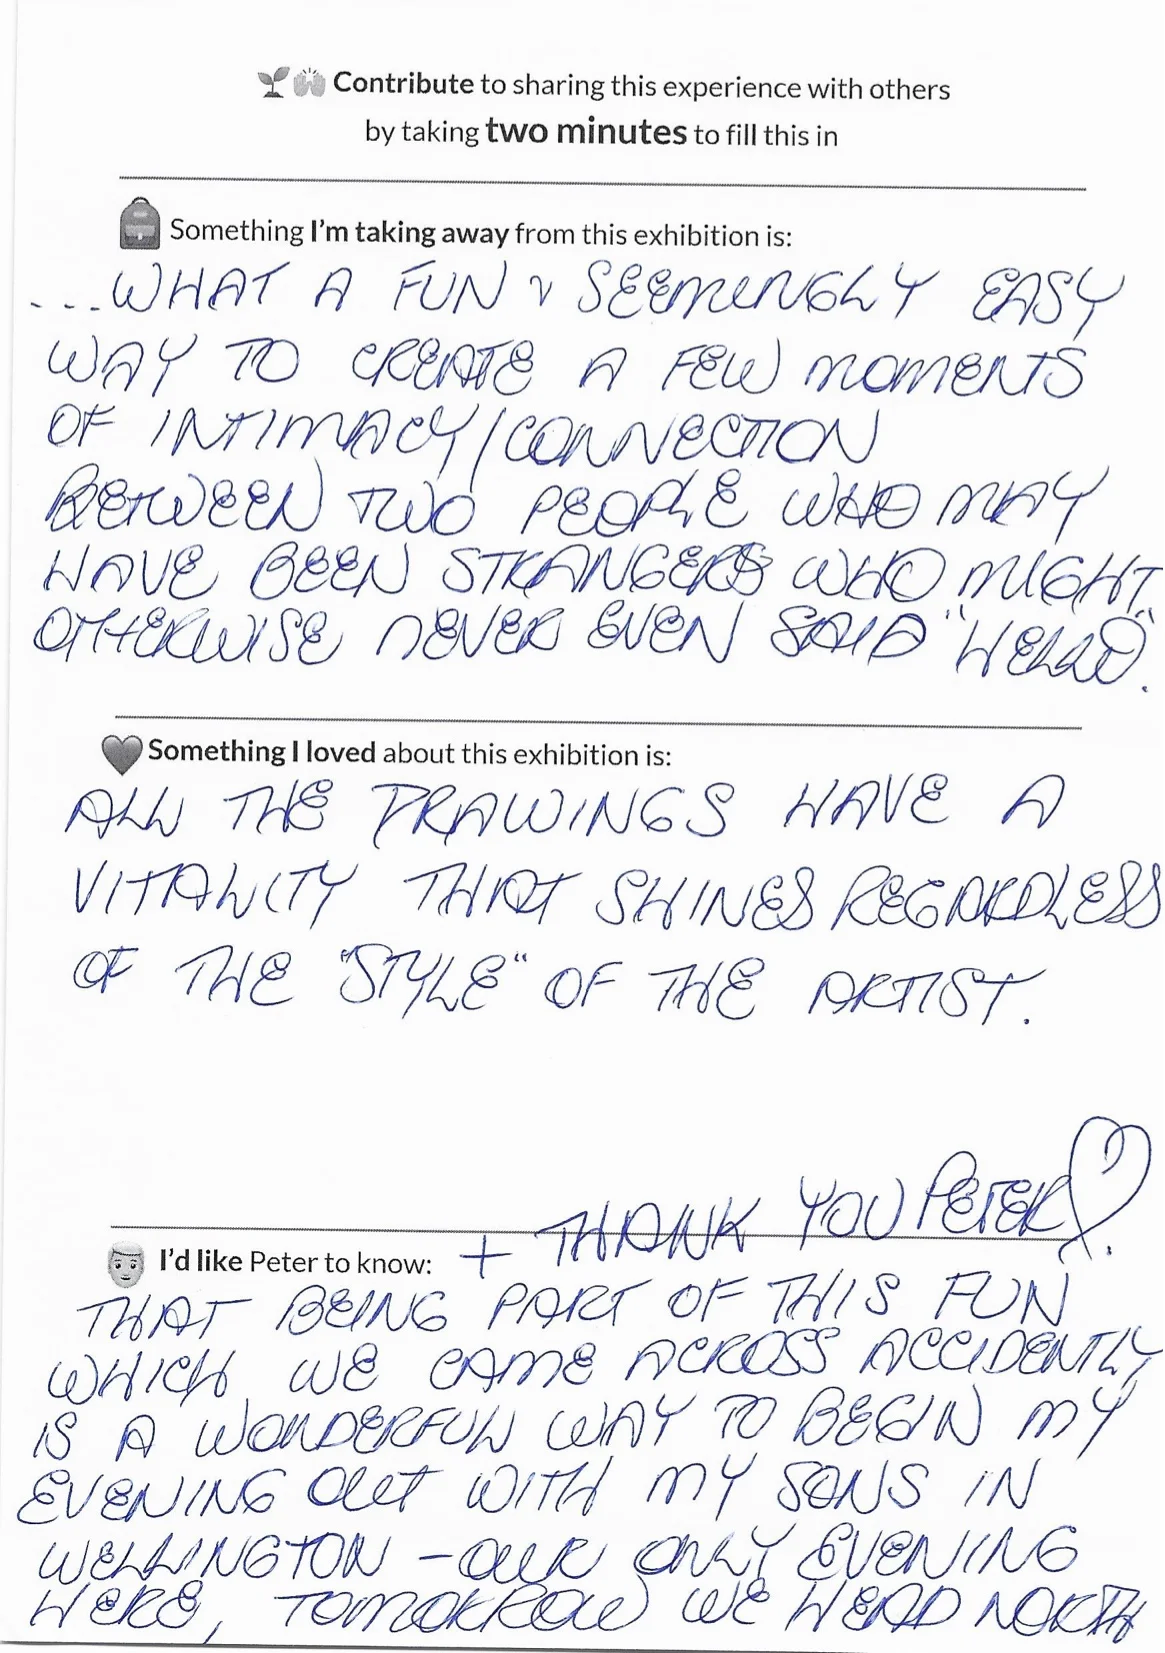 Contribute to sharing this experience with others
by taking two minutes to fill this in
Something I'm taking away from this exhibition is:
...WHAT A FUN & SEEMINGLY EASY
WAY TO CREATE A FEW MOMENTS
OF INTIMACY/CONNECTION
BETWEEN TWO PEOPLE WHO MAY
HAVE BEEN STRANGERS WHO MIGHT
OTHERWISE NEVER EVEN SAID "HELLO".
Something I loved about this exhibition is:
ALL THE DRAWINGS HAVE A
VITALITY THAT SHINES REGARDLESS
OF THE "STYLE" OF THE ARTIST.
+ THANK YOU PETER
I'd like Peter to know:
THAT BEING PART OF THIS FUN
WHICH WE CAME ACROSS ACCIDENTLY
IS A WONDERFUL WAY TO BEGIN MY
EVENING OUT WITH MY SONS IN
WELLINGTON - OUR ONLY EVENING
HERE, TOMORROW WE HEAD NORTH